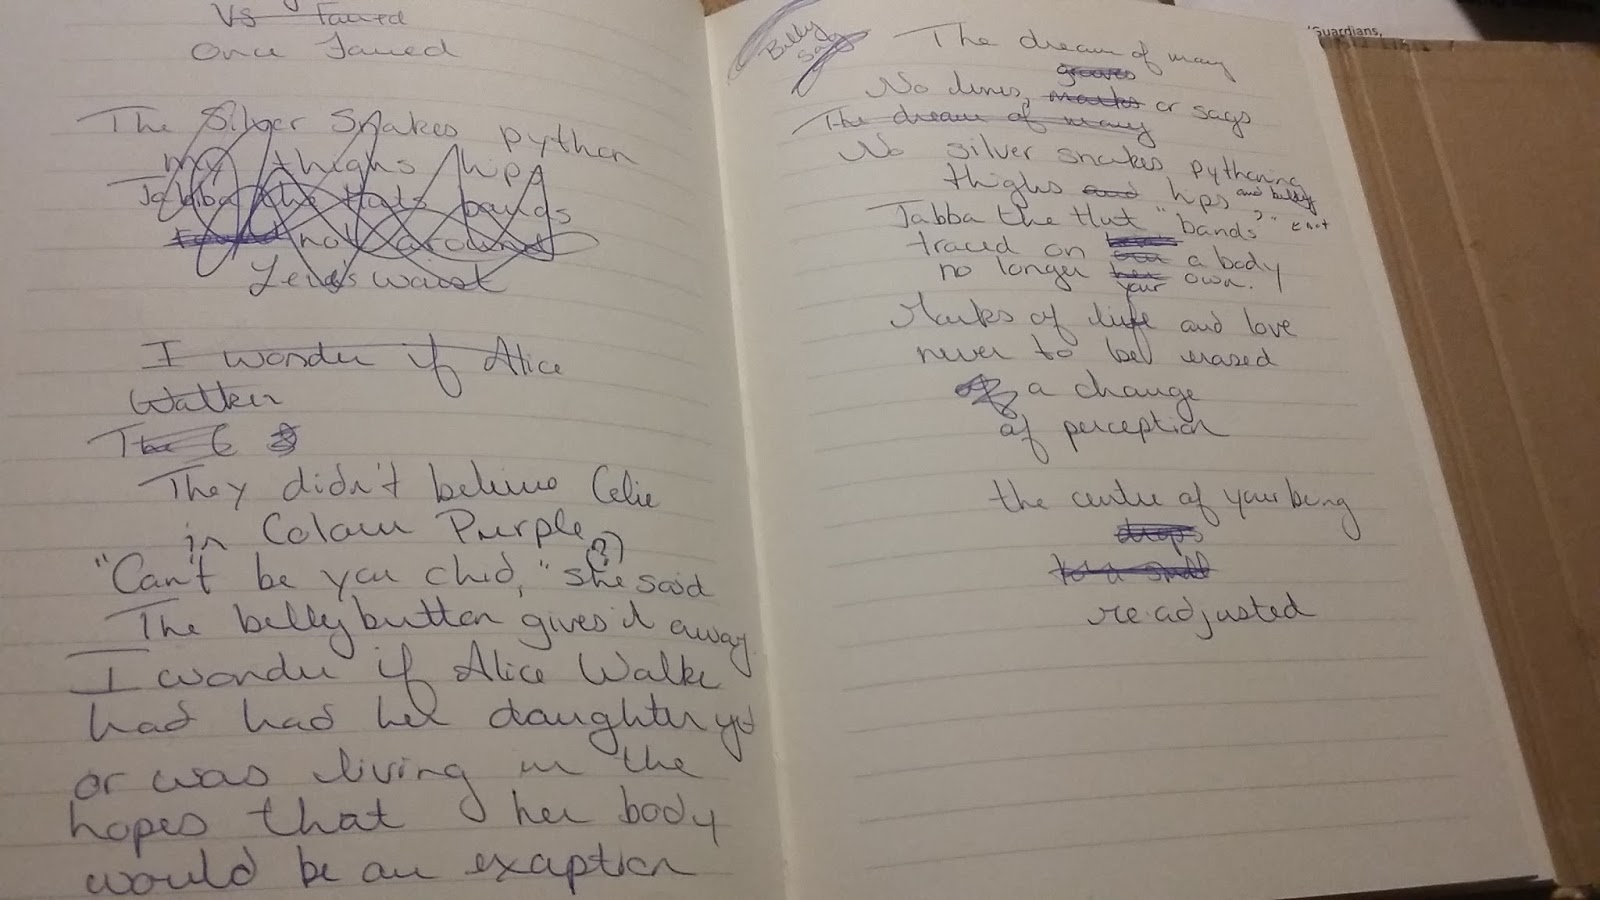 Vs Taured
Once Taured
The Silver Snakes python
my thighs hips
Jabba the Huts bands
not around
Leia's waist
I wonder if Alice
Walker
The C
They didn't believe Celie
in Colour Purple
(?)
"Can't be you chid," she said
The bellybutton gives it away.
I wonder if Alice Walke
had had her daughter yet
or was living in the
hopes that her body
would be an exaption
Belly
Sag
The dream of many
grooves
No lines, marks or sags
The dream of many
No silver snakes pythoning
thighs and hips and belly
Jabba the Hut "bands"
traced on a body
no longer her own.
your
Marks of life and love
never to be erased
a change
of perception
the centre of your being
drops
to a small
re-adjusted
'Guardians,